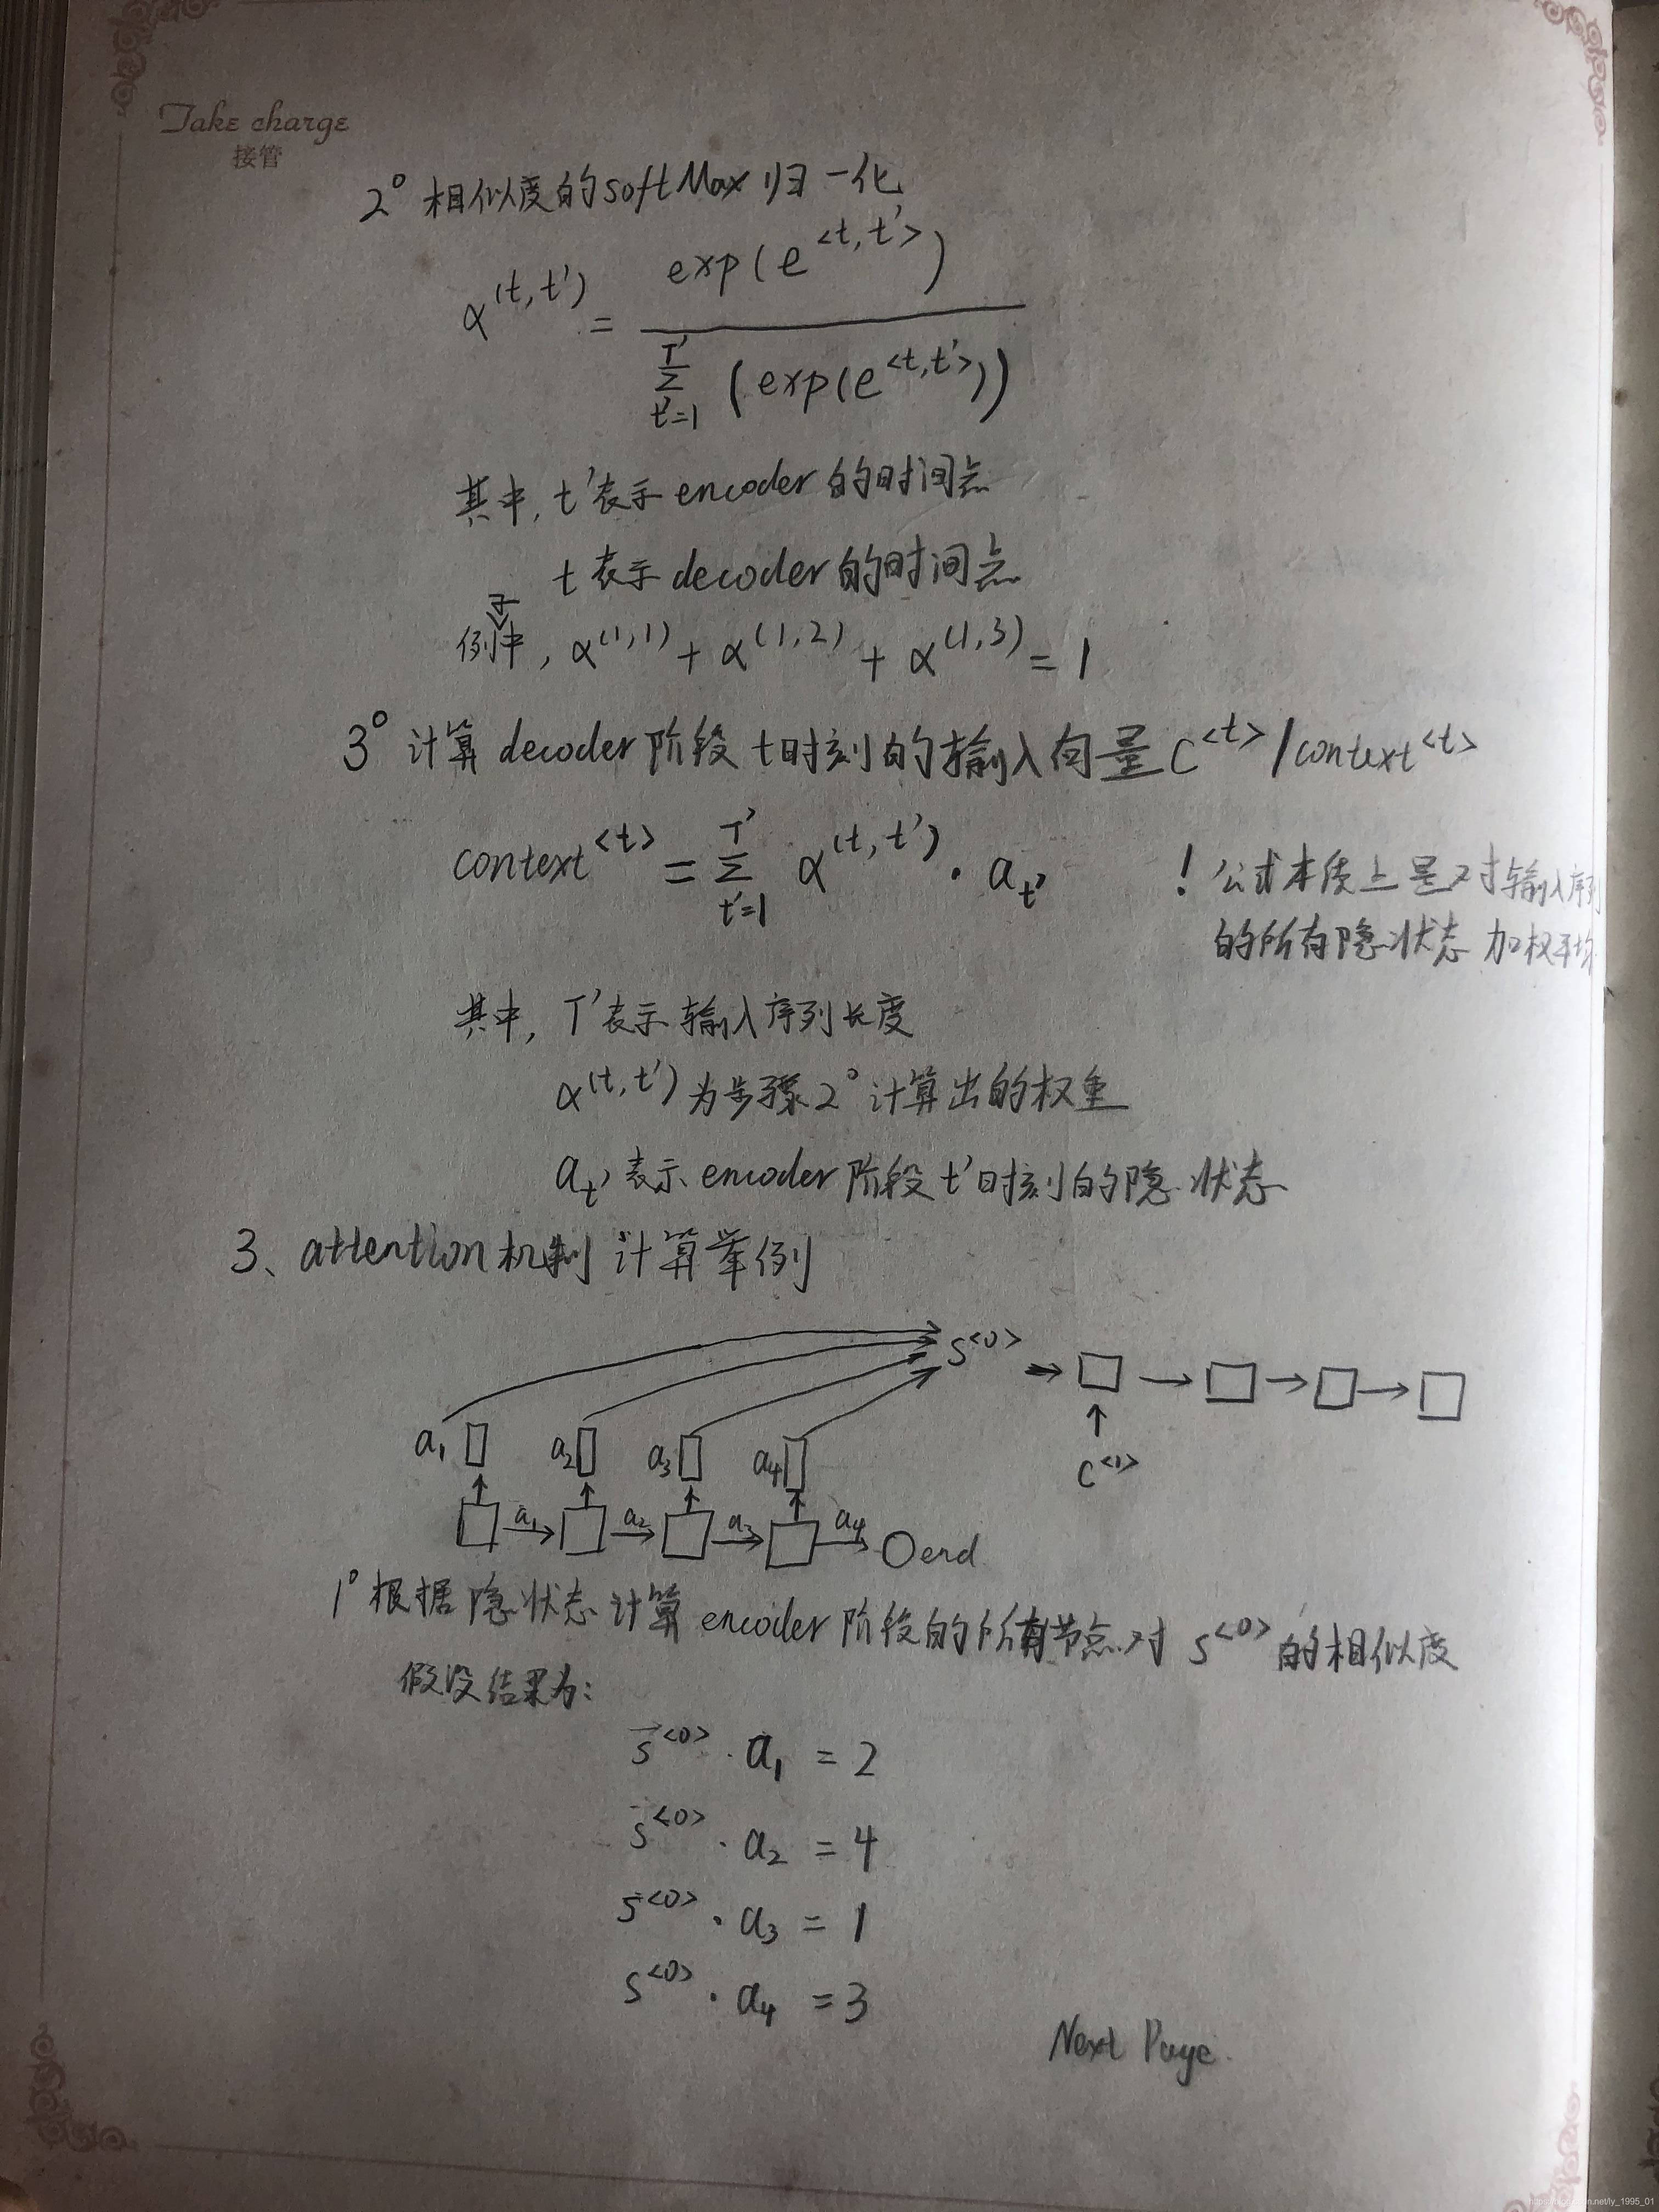 Take charge
接管
2° 相似度的softMax归一化
α^(t,t') = exp(e^<t,t'>) / Σ_{t'=1}^{T'} (exp(e^<t,t'>))
其中, t'表示encoder的时间点
t表示decoder的时间点
例子中, α^(1,1) + α^(1,2) + α^(1,3) = 1
3° 计算decoder阶段t时刻的输入向量C^<t>/context^<t>
context^<t> = Σ_{t'=1}^{T'} α^(t,t') · a_t'
! 公式本质上是对输入序列
的所有隐状态加权平均
其中, T'表示输入序列长度
α^(t,t')为步骤2°计算出的权重
a_t'表示encoder阶段t'时刻的隐状态
3、attention机制计算举例
S^<0>
a₁ a₂ a₃ a₄
C^<1>
a₁ a₂ a₃ a₄ end
1° 根据隐状态计算encoder阶段的所有节点对S^<0>的相似度
假设结果为:
S^<0> · a₁ = 2
S^<0> · a₂ = 4
S^<0> · a₃ = 1
S^<0> · a₄ = 3
Next Page.